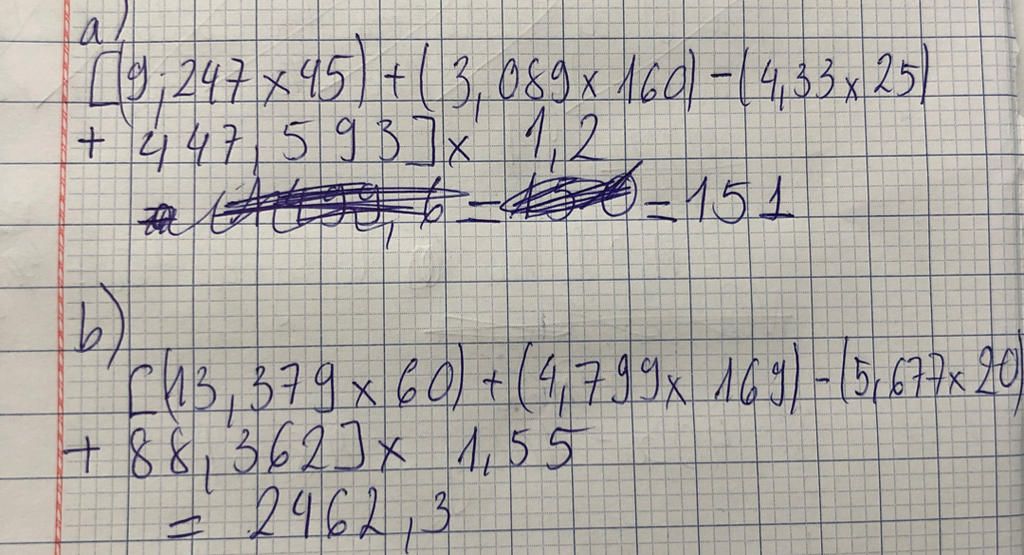 a)
[(9,247 x 45) + (3,089 x 160) - (4,33 x 25)
+ 447,593] x 1,2
= = 151
b)
[(13,379 x 60) + (4,799 x 169) - (5,677 x 20)
+ 88,362] x 1,55
= 2462,3